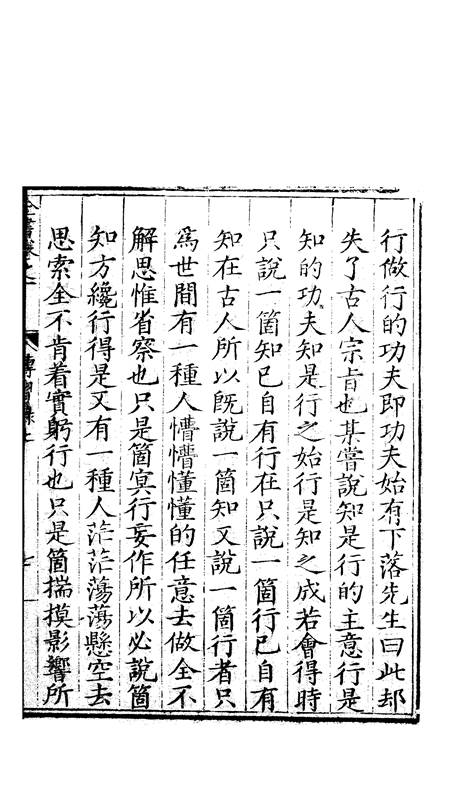 行做行的功夫即功夫始有下落先生曰此却
失了古人宗旨也某嘗說知是行的主意行是
知的功夫知是行之始行是知之成若會得時
只說一箇知已自有行在只說一箇行已自有
知在古人所以旣說一箇知又說一箇行者只
爲世間有一種人懵懵懂懂的任意去做全不
解思惟省察也只是箇冥行妄作所以必說箇
知方纔行得是又有一種人茫茫蕩蕩懸空去
思索全不肯着實躬行也只是箇揣摸影響所
全書卷之一 傳習錄上 七